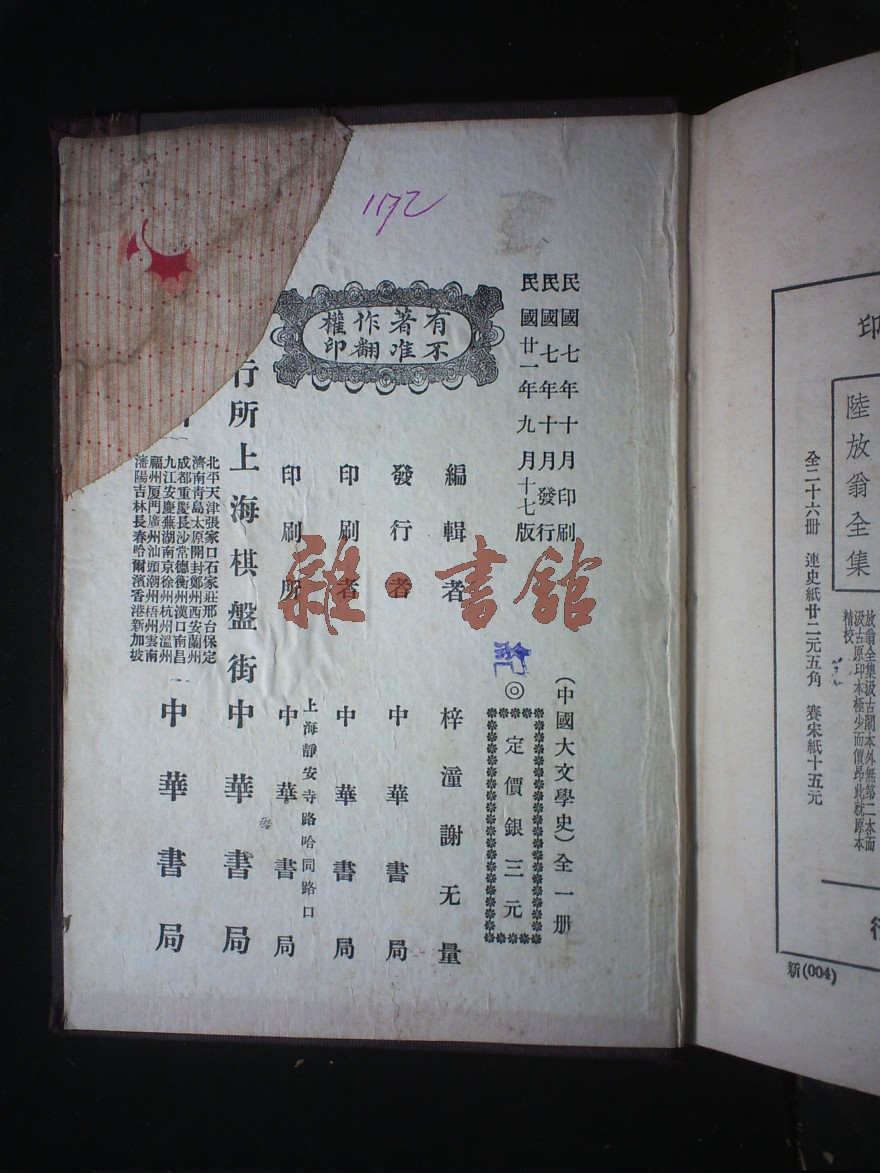 1172
民國七年十月印刷
民國七年十月發行
民國廿一年九月十七版
有著作權
不准翻印
(中國大文學史)全一冊
◎定價銀三元
編輯者 梓潼謝无量
發行者 中華書局
印刷者 中華書局
印刷所 上海靜安寺路哈同路口 中華書局
行所 上海棋盤街 中華書局
中華書局
北平天津張家口石家莊邢台保定
濟南青島太原開封鄭州西安蘭州
成都重慶長沙常德衡州漢口南昌
九江安慶蕪湖南京徐州杭州溫州
福州厦門廣州汕頭潮州梧州雲南
瀋陽吉林長春哈爾濱香港新加坡
雜·書館
印
陸放翁全集
全二十六冊 連史紙廿二元五角 賽宋紙十五元
放翁全集汲古閣本外無第二本而
汲古原印本極少而價昂此就原本
精校
行
新(004)